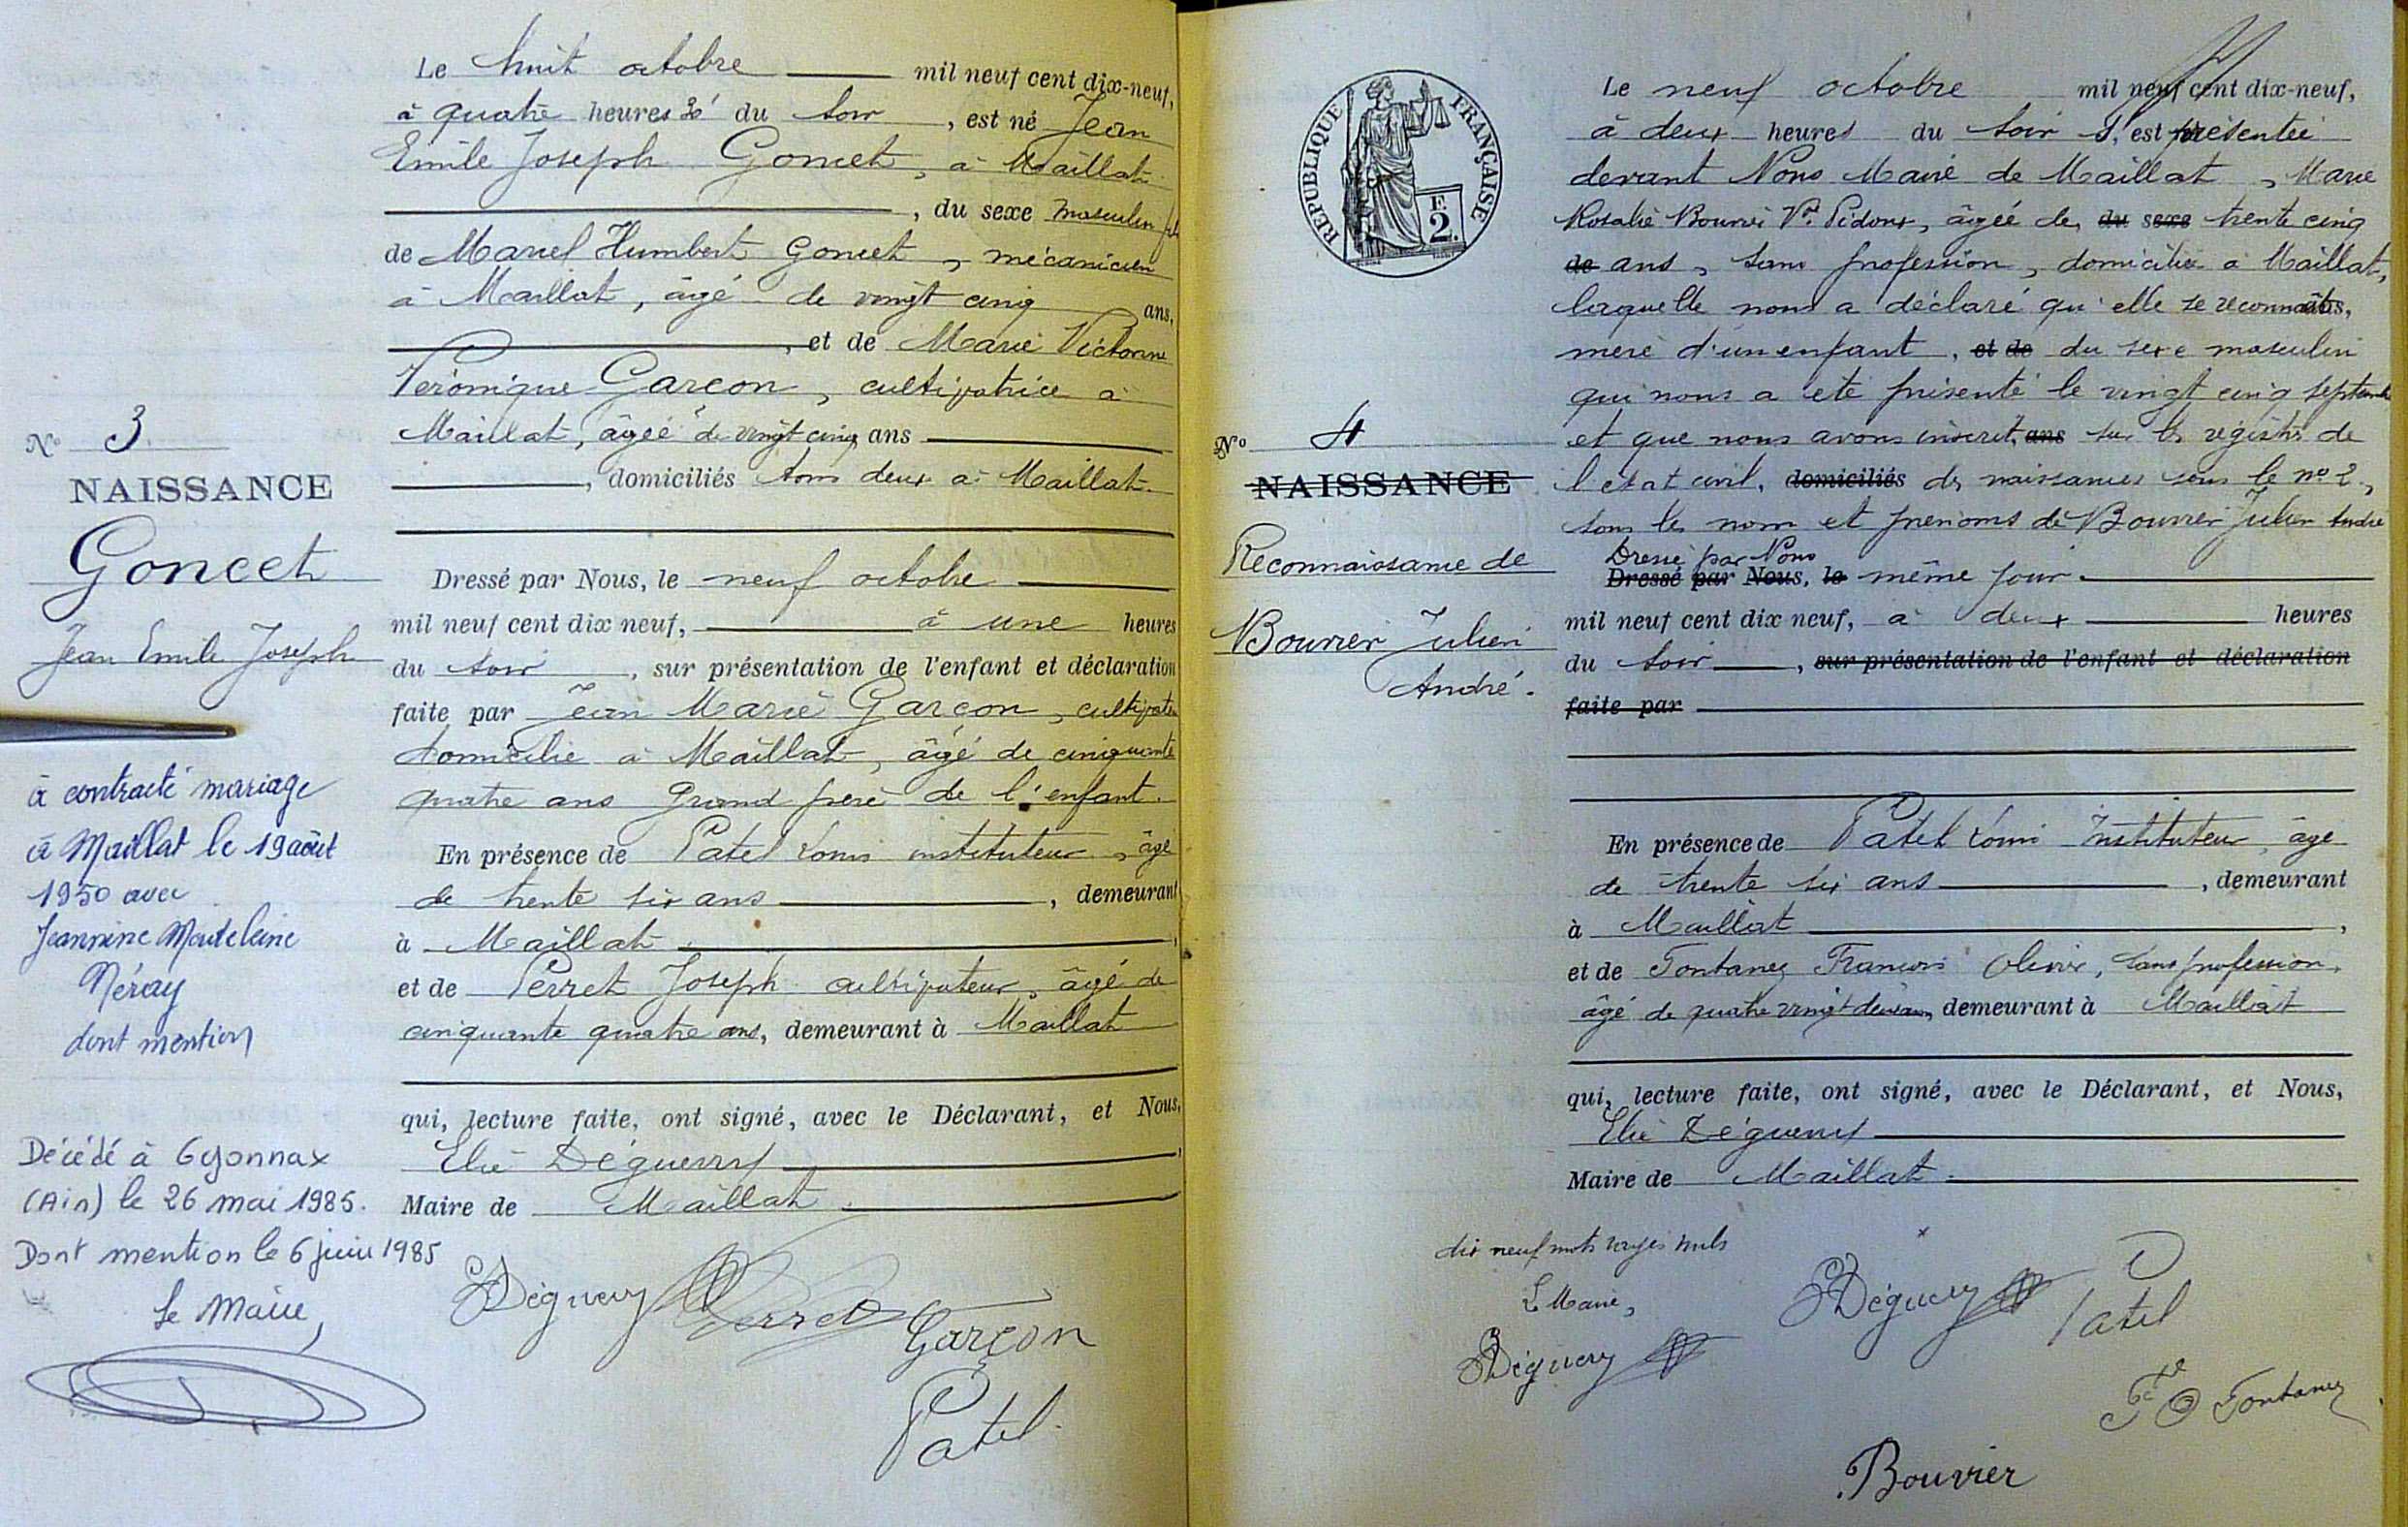 Le huit octobre mil neuf cent dix-neuf,
à quatre heures 30' du soir, est né Jean
Emile Joseph Goncet, à Maillat
, du sexe masculin fils
de Marcel Humbert Goncet, mécanicien
à Maillat, âgé de vingt cinq ans,
, et de Marie Victorine
Véronique Garçon, cultivatrice à
Maillat, âgée de vingt cinq ans
, domiciliés tous deux à Maillat.
N° 3
NAISSANCE
Goncet
Jean Emile Joseph
Dressé par Nous, le neuf octobre
mil neuf cent dix neuf, à une heures
du soir, sur présentation de l'enfant et déclaration
faite par Jean Marie Garçon, cultivateur
domicilié à Maillat, âgé de cinquante
quatre ans Grand père de l'enfant.
En présence de Patel Louis instituteur, âgé
de trente six ans, demeurant
à Maillat
et de Perret Joseph cultivateur, âgé de
cinquante quatre ans, demeurant à Maillat
qui, lecture faite, ont signé, avec le Déclarant, et Nous,
Elie Déguerry
Maire de Maillat.
à contracté mariage
à Maillat le 19 août
1950 avec
Jeannine Madeleine
Néray
dont mention
Décédé à Oyonnax
(Ain) le 26 mai 1985.
Dont mention le 6 juin 1985
Le Maire,
EDéguerry Perret
Garçon
Patel
RÉPUBLIQUE FRANÇAISE
E.
2.
Le neuf octobre mil neuf cent dix-neuf,
à deux heures du soir s'est présentée
devant Nous Maire de Maillat, Marie
Rosalie Bouvier Vve Pidoux, âgée de du sexe trente cinq
de ans, sans profession, domiciliée à Maillat,
laquelle nous a déclaré qu'elle se reconnaît ans,
mère d'un enfant, et de du sexe masculin
qui nous a été présenté le vingt cinq septembre
et que nous avons inscrit, ans sur les registres de
l'état civil, domiciliés des naissances sous le n° 2,
sous les nom et prénoms de Bouvier Julien André
Dressé par Nous
Dressé par Nous, le même jour.
mil neuf cent dix neuf, à deux heures
du soir, sur présentation de l'enfant et déclaration
faite par
N° 4
NAISSANCE
Reconnaissance de
Bouvier Julien
André.
En présence de Patel Louis Instituteur, âgé
de trente six ans, demeurant
à Maillat,
et de Fontanez François Olivier, sans profession,
âgé de quatre vingt deux ans, demeurant à Maillat
qui, lecture faite, ont signé, avec le Déclarant, et Nous,
Elie Déguerry
Maire de Maillat.
dix neuf mots rayés nuls
Le Maire,
EDéguerry
EDéguerry
Patel
Fontanez
Bouvier